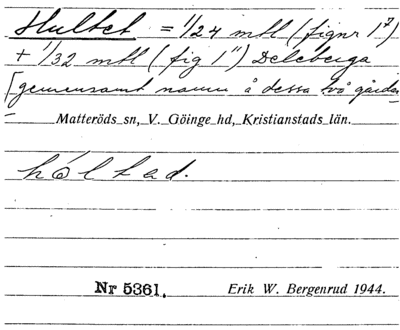 Hultet = 1/24 mtl (fignr 1⁷)
+ 1/32 mtl (fig 1") Deleberga
[gemensamt namn å dessa två gårdar
Matteröds sn, V. Göinge hd, Kristianstads län.
hól tad.
Nr 5361. Erik W. Bergenrud 1944.